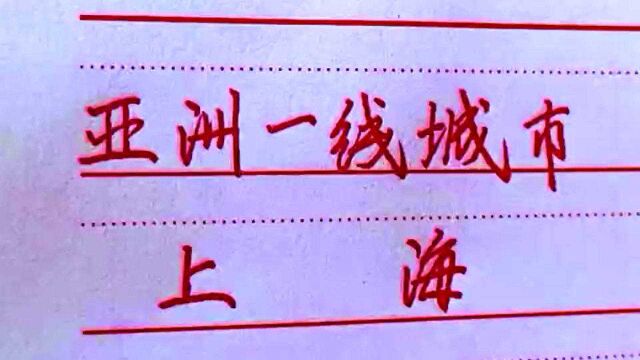 亚洲一线城市
上海